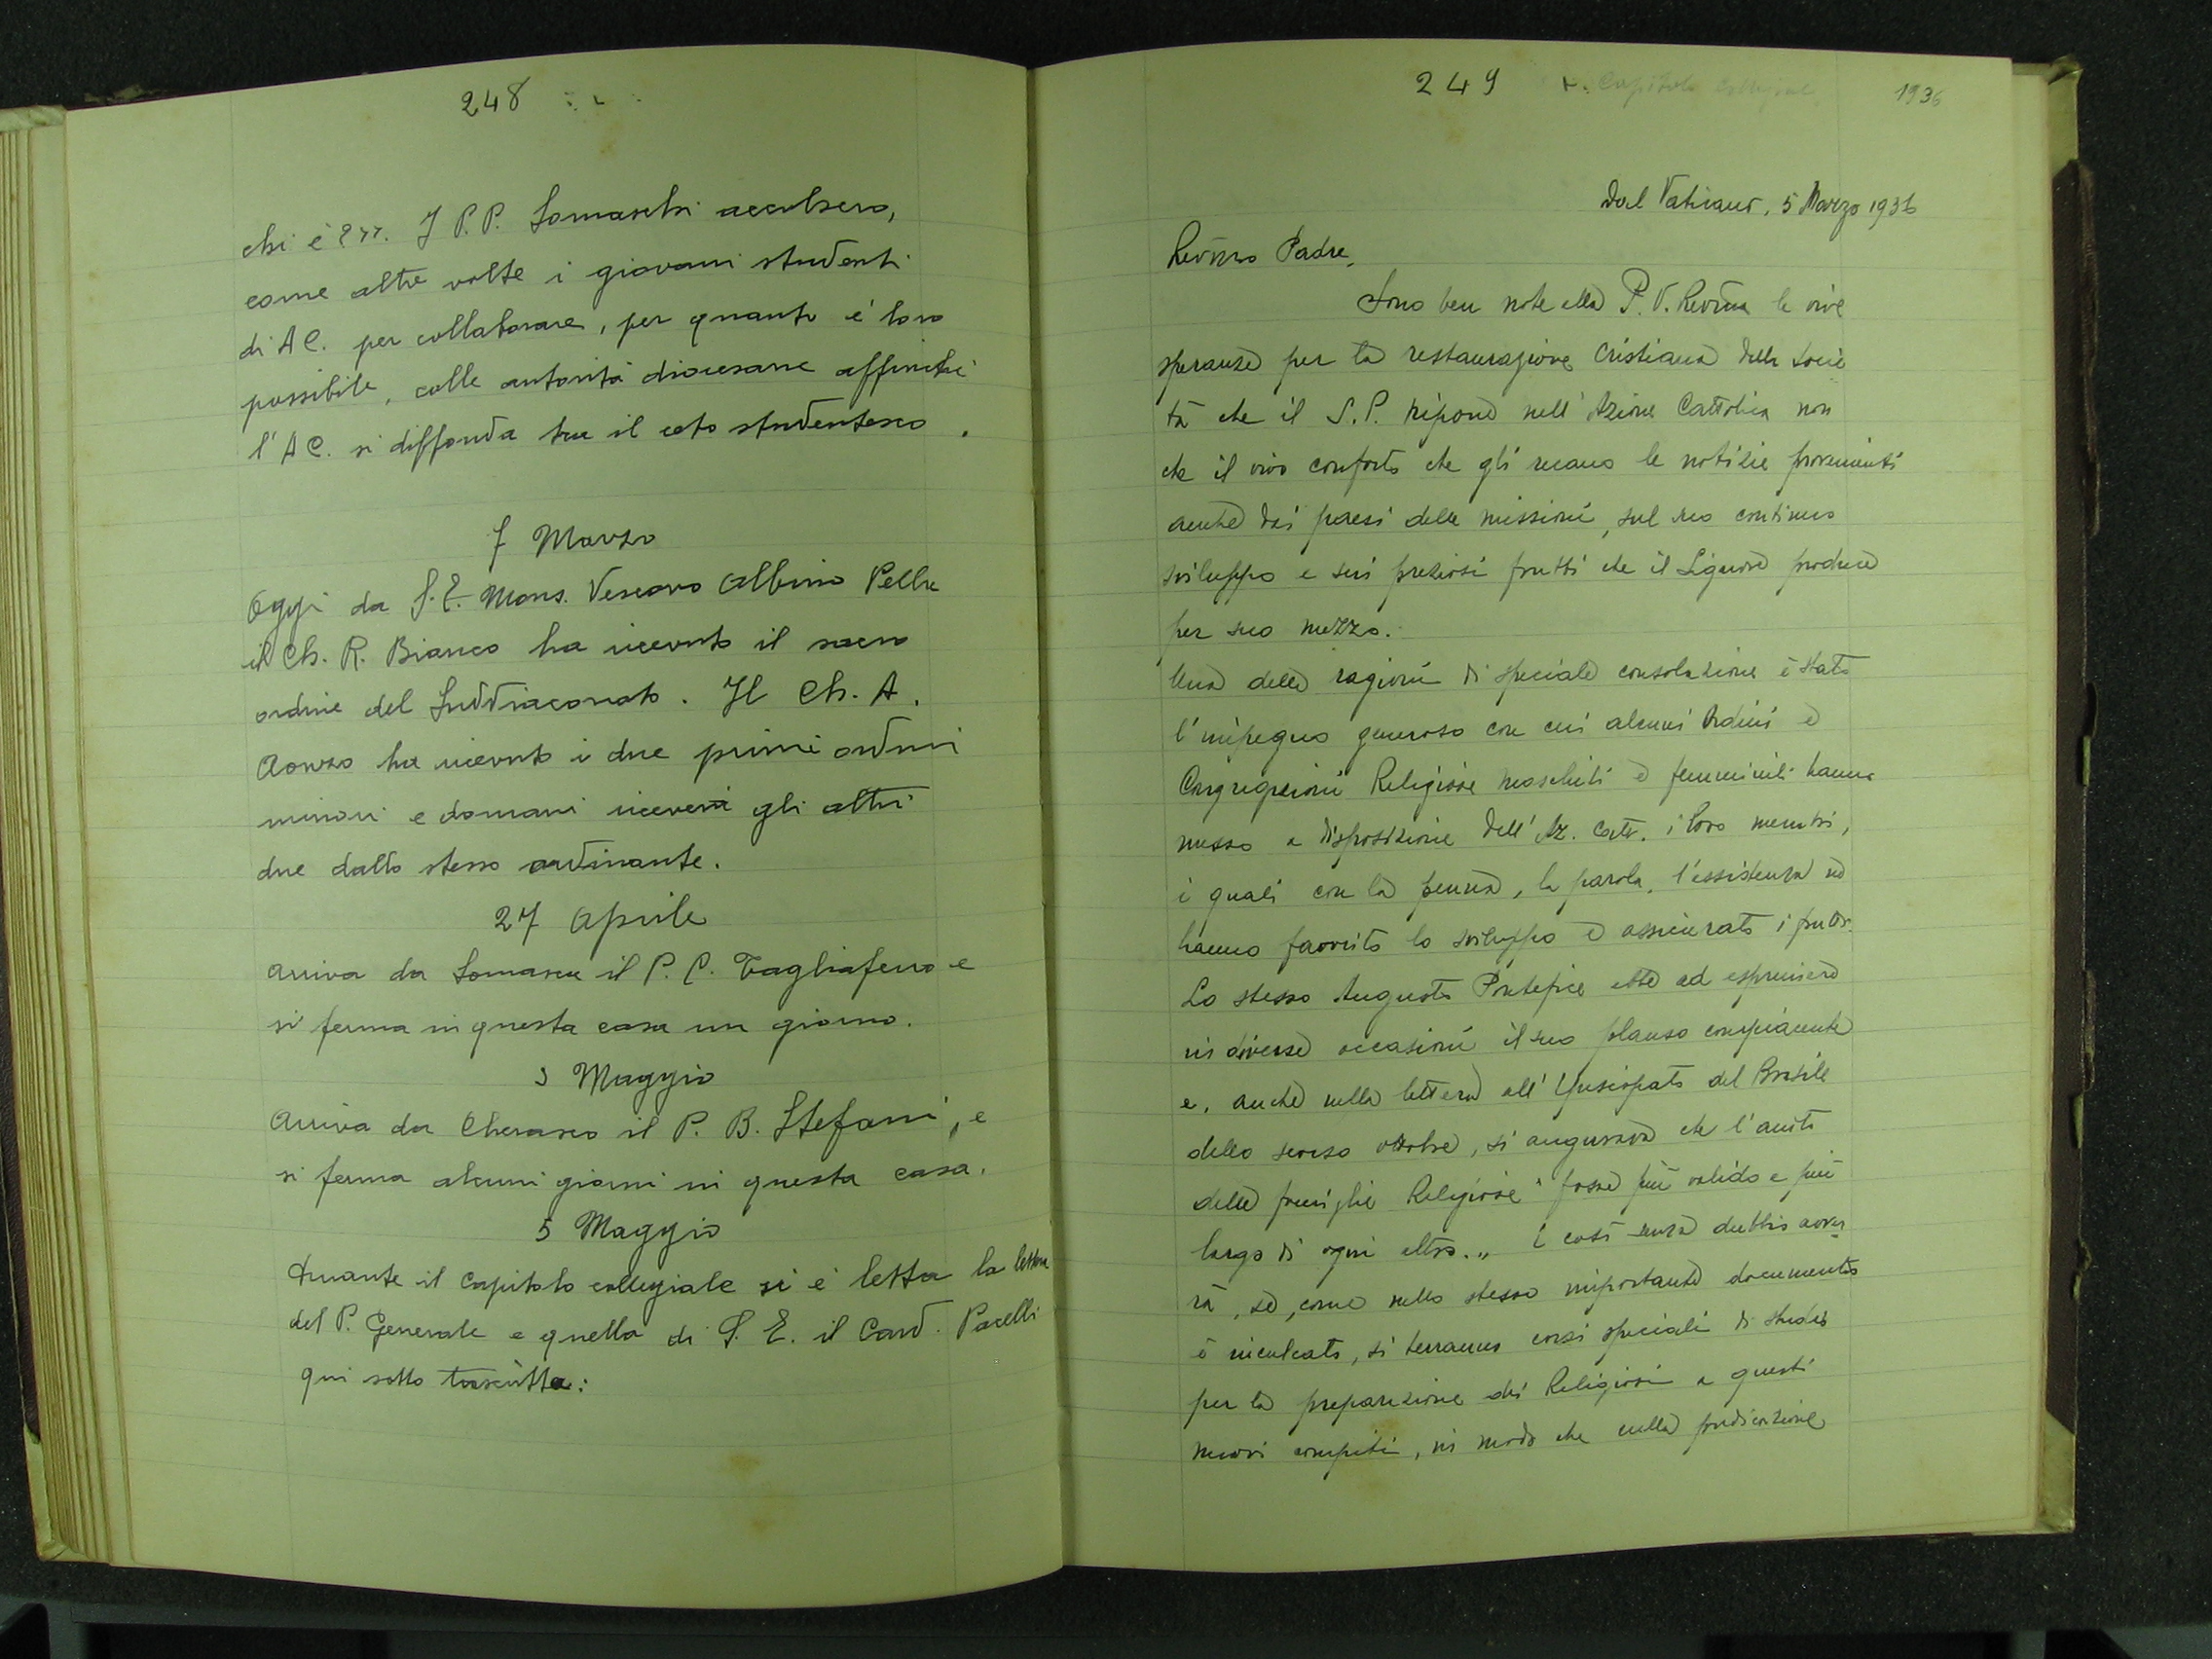 248
chi è?». I P.P. Somaschi accolsero,
come altre volte i giovani studenti
di A C. per collaborare, per quanto è loro
possibile, colle autorità diocesane affinché
l'A C. si diffonda tra il ceto studentesco.
7 Marzo
Oggi da S. E. Mons. Vescovo Albino Pella
il Ch. R. Bianco ha ricevuto il sacro
ordine del Suddiaconato. Il Ch. A.
Aonzo ha ricevuto i due primi ordini
minori e domani riceverà gli altri
due dallo stesso ordinante.
27 Aprile
Arriva da Somasca il P. C. Tagliaferro e
si ferma in questa casa un giorno.
3 Maggio
Arriva da Cherasco il P. B. Stefani, e
si ferma alcuni giorni in questa casa.
5 Maggio
Durante il Capitolo collegiale si è letta la lettera
del P. Generale e quella di S. E. il Card. Pacelli
qui sotto trascritta:
249 Capitolo Collegiale 1936
Dal Vaticano, 5 Marzo 1936
Rev̄mo Padre,
Sono ben note alla P. V. Rev̄ma le vive
speranze per la restaurazione Cristiana della socie
tà che il S. P. ripone nell'Azione Cattolica non
che il vivo conforto che gli recano le notizie provenienti
anche dai paesi delle missioni, sul suo continuo
sviluppo e sui preziosi frutti che il Signore produce
per suo mezzo.
Una delle ragioni di speciale consolazione è stato
l'impegno generoso con cui alcuni Ordini e
Congregazioni Religiose maschili e femminili hanno
messo a disposizione dell'Az. Catt. i loro membri,
i quali con la penna, la parola, l'assistenza ne
hanno favorito lo sviluppo e assicurato i frutti.
Lo stesso Augusto Pontefice ebbe ad esprimere
in diverse occasioni il suo plauso compiacente
e, anche nella lettera all'Episcopato del Brasile
dello scorso ottobre, si augurava che l'aiuto
delle famiglie Religiose " fosse più valido e più
largo di ogni altro. „ E così senza dubbio avver
rà, se, come nello stesso importante documento
è inculcato, si terranno corsi speciali di studio
per la preparazione dei Religiosi a questi
nuovi compiti, in modo che nella predicazione